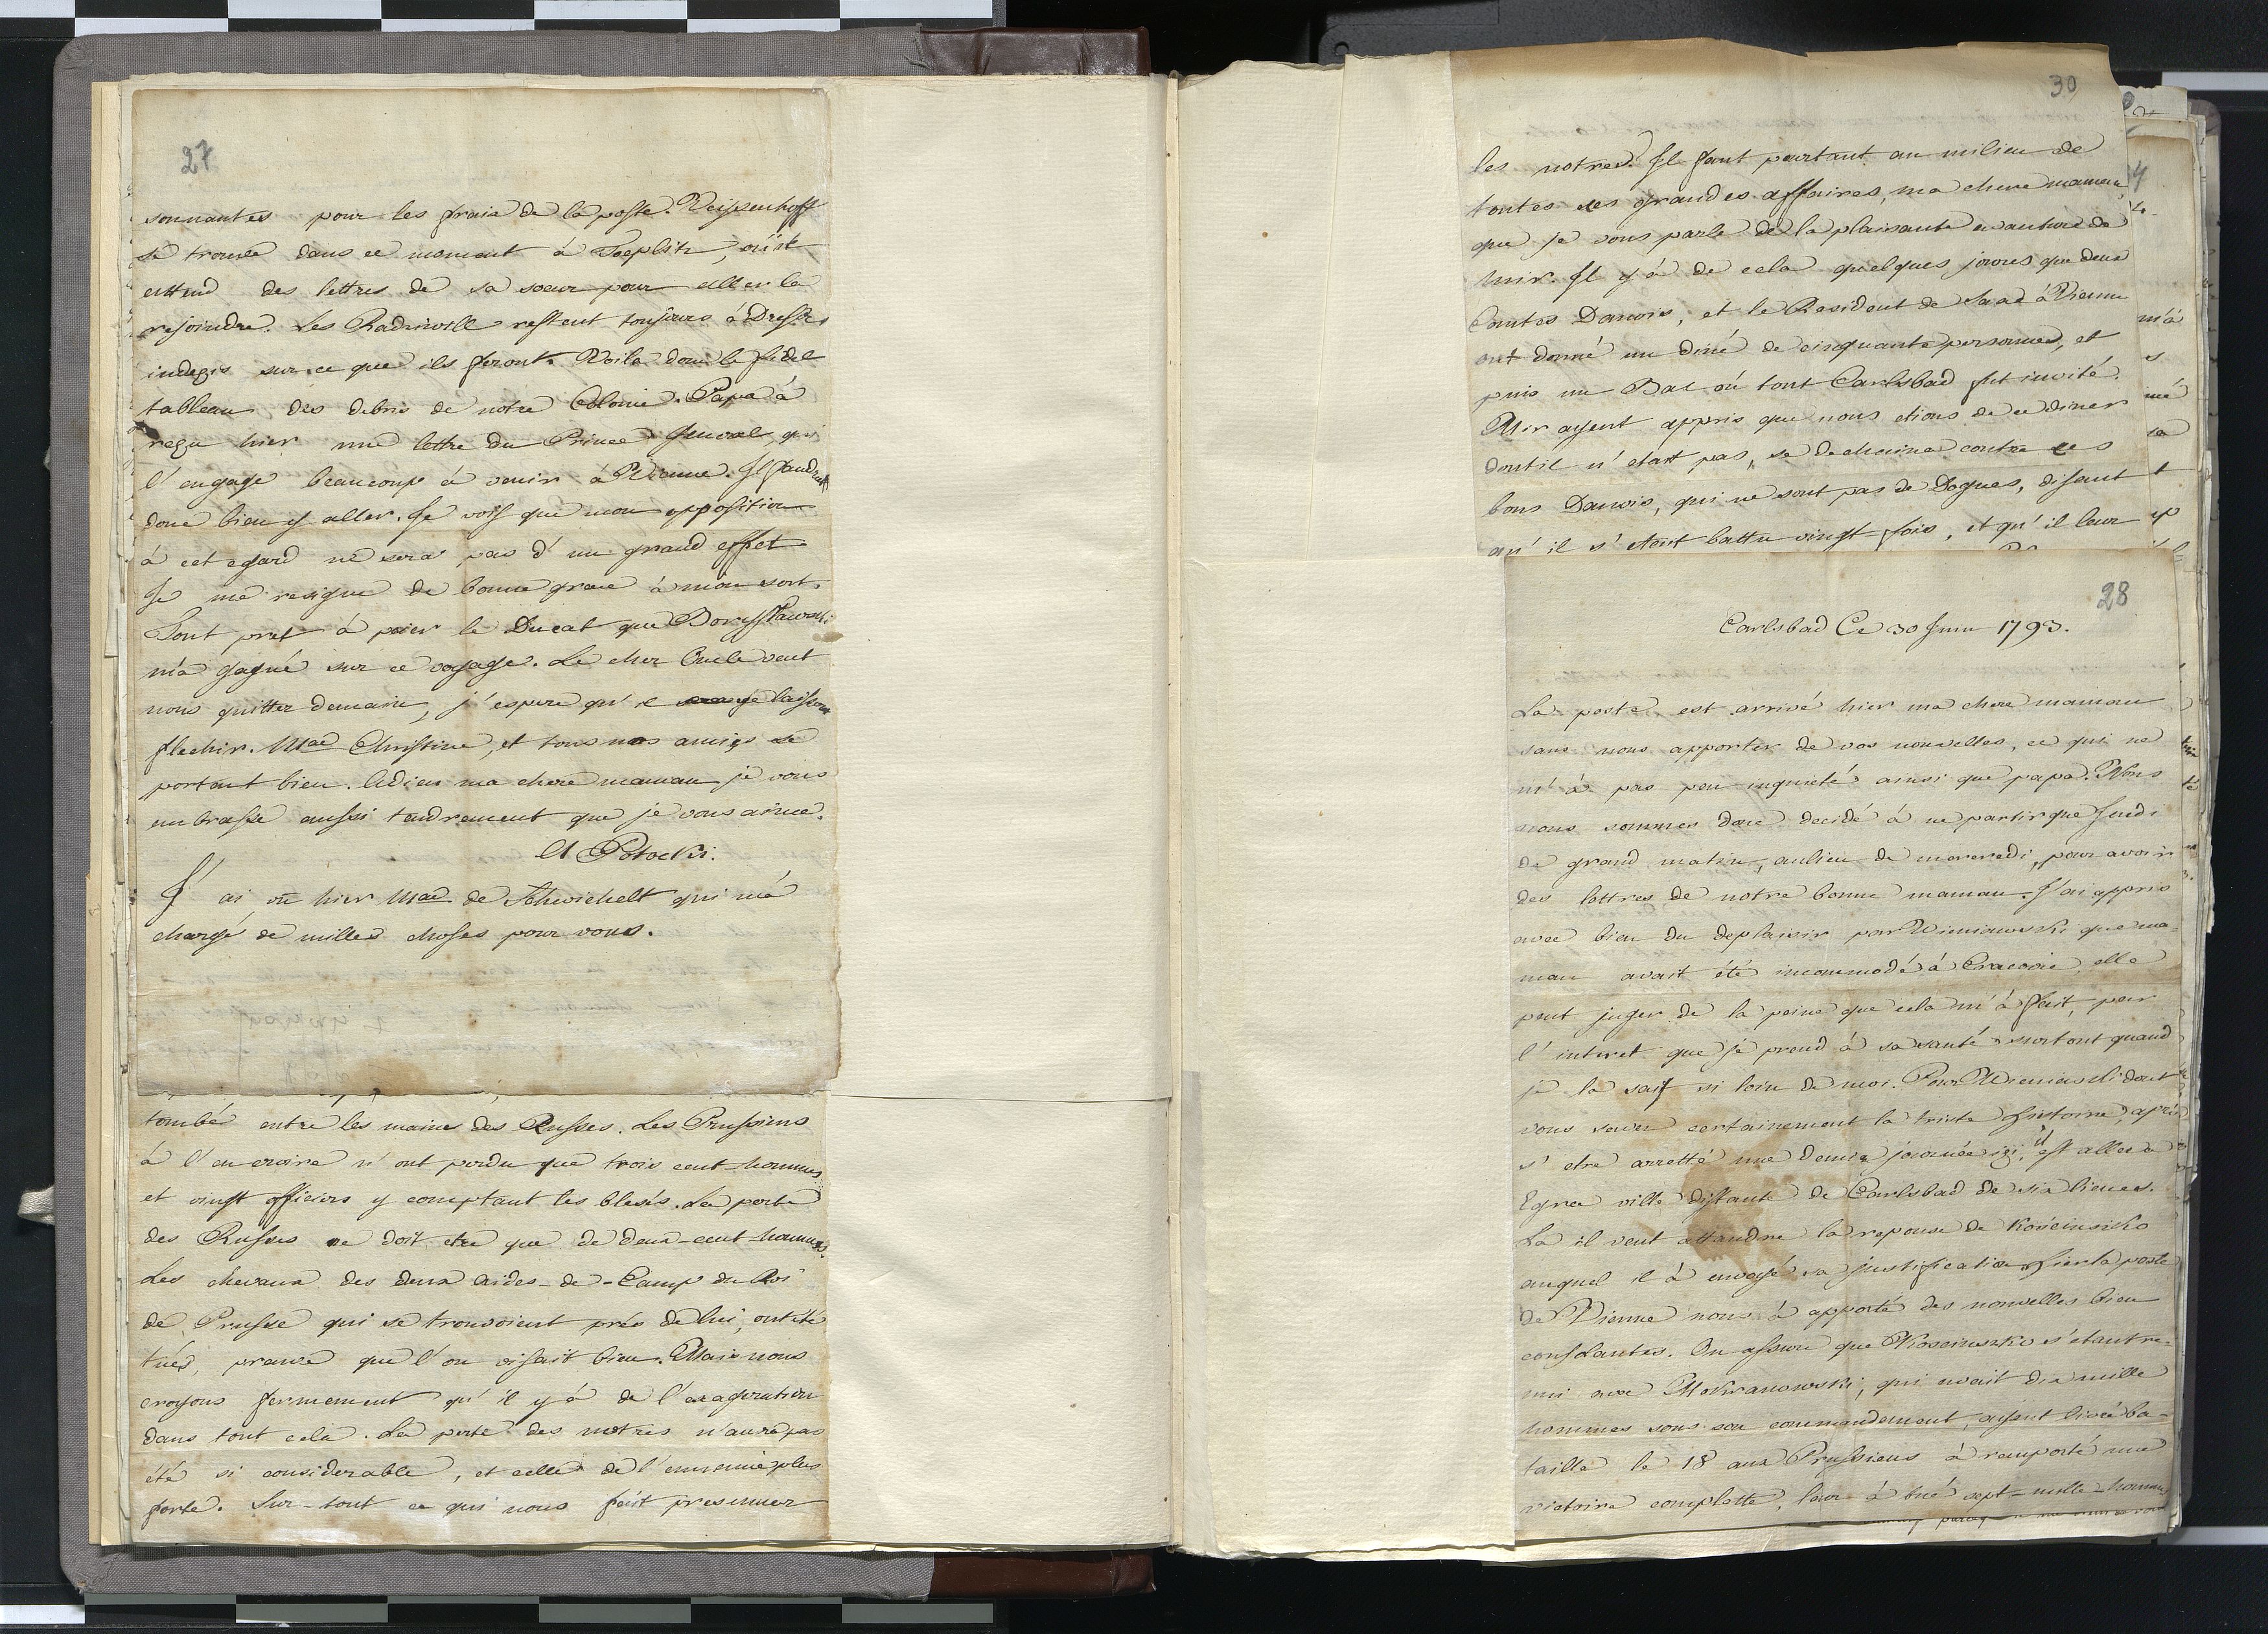 27
sonnantes pour les frais de la poste. Weissenhoff
se trouve dans ce moment à Toeplitz, où il
attend des lettres de sa soeur pour aller la
rejoindre. Les Radziwill restent toujours à Dresde
indegis sur ce que ils feront. Voila donc le fidel
tableau des debris de notre Colonie. Papa à
reçu hier une lettre du Prince General qui
l'engage beaucoup à venir à Vienne. Il faudra
donc bien y aller. Je vois que mon opposition
à cet egard ne sera pas d'un grand effet
Je me resigne de bonne grace à mon sort.
Tout pret à paier le Ducat que Boryslawski
m'a gagné sur ce voyage. Le cher Oncle veut
nous quitter demain, j'espere qu'il se laissera
flechir. Mad Christine, et tous nos amis se
portent bien. Adieu ma chere maman je vous
embrasse aussi tendrement que je vous aime.
A Potocki.
J'ai vu hier Mad de Schwichelt qui m'à
chargé de milles choses pour vous.
tombé entre les mains des Russes. Les Prussiens
à l'en croire n'ont perdu que trois cent-hommes
et vingt officiers y comptant les blesés. La perte
des Russes ne doit etre que de deux-cent-hommes.
Les chevaux des deux aides-de-Camp du Roi
de Prusse qui se trouvoient près de lui, ont été
tués, preuve que l'on visait bien. Mais nous
croyons fermement qu'il y à de l'exageration
dans tout cela. La perte des notres n'aura pas
été si considerable, et celle de l'ennemie plus
forte. Sur-tout ce qui nous fait presumer
30
les notres. Il faut pourtant au milieu de
toutes ces grandes affaires, ma chere maman,
que je vous parle de la plaisante avanture de
Mir. Il y à de cela quelques joures que deux
Comtes Danois, et le Resident de Saxe à Vienne
ont donné un diné de cinquante personnes, et
puis un Bal où tout Carlsbad fut invité.
Mir ayent appris que nous etions de ce diner
dont il n'etait pas, se dechaine contre ces
bons Danois, qui ne sont pas de Dogues, disant
qu'il s'etait battu vingt-fois, et qu'il leur
28
Carlsbad Ce 30 Juin 1793.
La poste est arrivé hier ma chere maman
sans nous apporter de vos nouvelles, ce qui ne
m'à pas peu inquieté ainsi que papa. Nous
nous sommes donc decidé à ne partir que Jeudi
de grand matin, aulieu de mercredi, pour avoir
des lettres de notre bonne maman. J'ai appris
avec bien du deplaisir par Wieniawski que ma-
man avait été incommodé à Cracovie, elle
peut juger de la peine que cela m'à fait, par
l'interet que je prend à sa santé surtout quand
je la sais si loin de moi. Pour Wieniawski dont
vous savez certainement la triste histoire, après
s'etre arretté une demie journée içi, il est allé à
Egra ville distante de Carlsbad de six lieues.
La il veut attandre la reponse de Kościuszko
auquel il à envoyé sa justification. Hier la poste
de Vienne nous à apporté des nouvelles bien
consolantes. On assure que Kosciuszko s'etant re-
uni avec Mokranowski, qui avait dix mille
hommes sous son commandement, ayent livré ba-
taille le 18 aux Prussiens à remporté une
victoire complette, leur à tué sept-mille-hommes